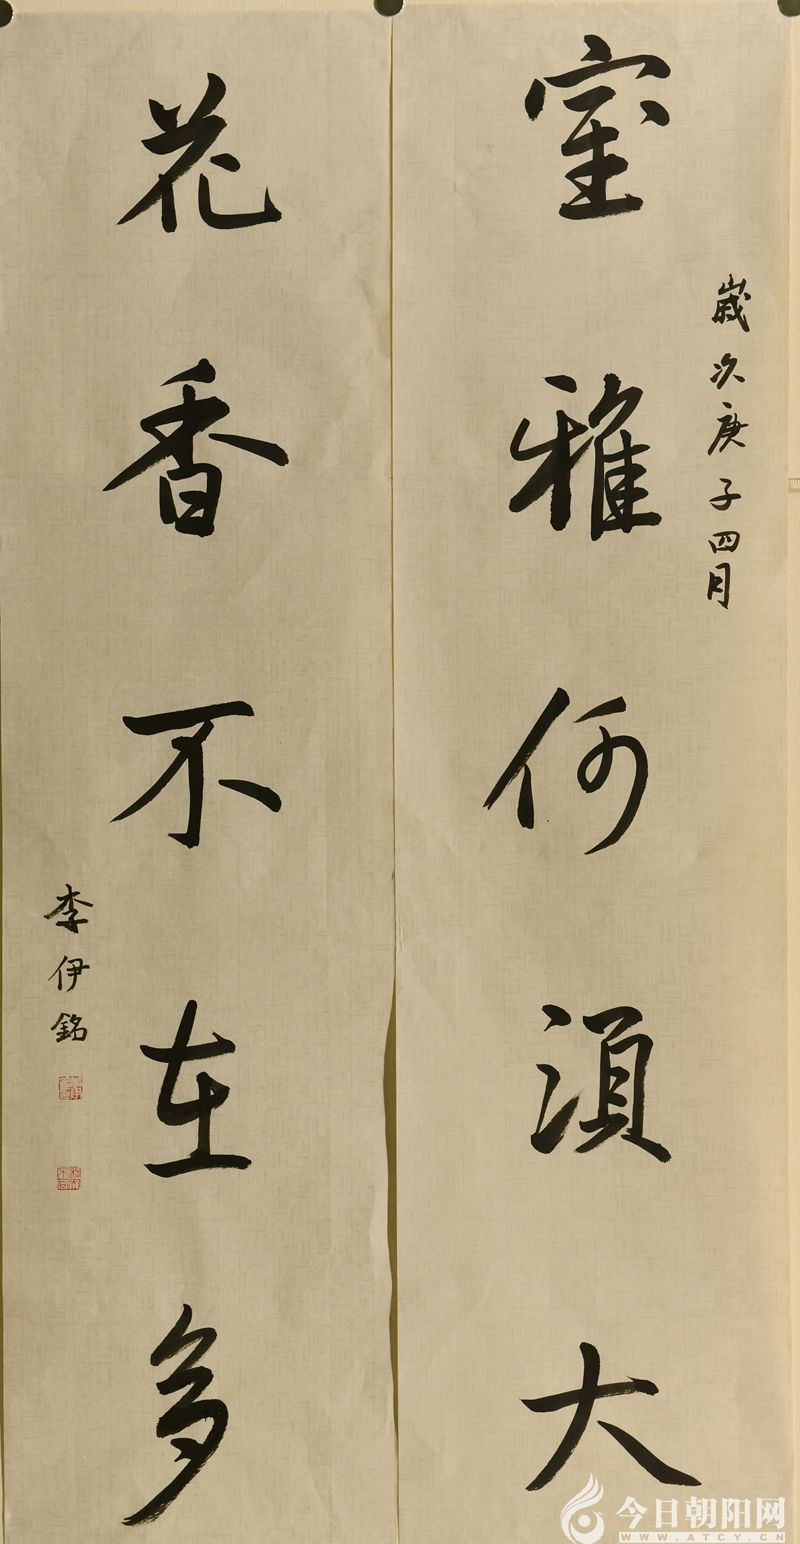 歲次庚子四月
室雅何須大
花香不在多
李伊銘
今日朝阳网
WWW.ATCY.CN